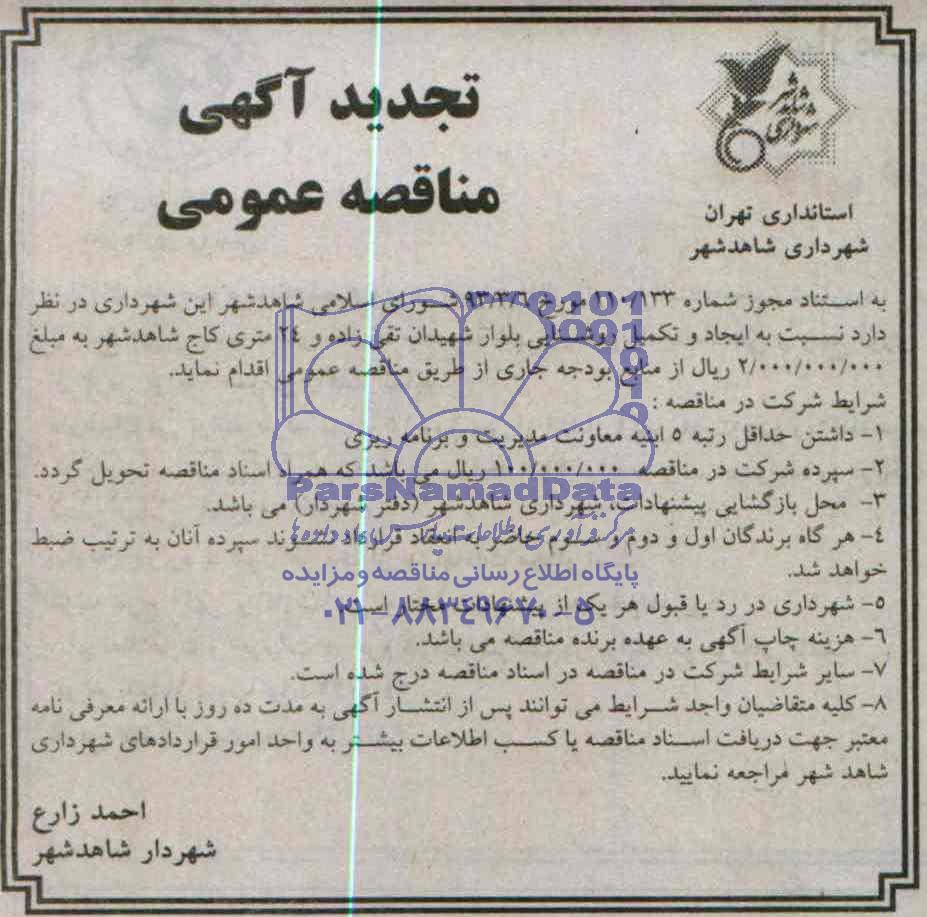 شهرداری
شاهدشهر
استانداری تهران
شهرداری شاهدشهر
تجدید آگهی
مناقصه عمومی
به استناد مجوز شماره ۱۱۰/۱۳۳ مورخ ۹۳/۳/۶ شورای اسلامی شاهدشهر این شهرداری در نظر
دارد نسبت به ایجاد و تکمیل روشنایی بلوار شهیدان تقی زاده و ۲۴ متری کاج شاهدشهر به مبلغ
۲/۰۰۰/۰۰۰/۰۰۰ ریال از منابع بودجه جاری از طریق مناقصه عمومی اقدام نماید.
شرایط شرکت در مناقصه :
۱- داشتن حداقل رتبه ۵ ابنیه معاونت مدیریت و برنامه ریزی
۲- سپرده شرکت در مناقصه ۱۰۰/۰۰۰/۰۰۰ ریال می باشد که همراه اسناد مناقصه تحویل گردد.
۳- محل بازگشایی پیشنهادات، شهرداری شاهدشهر (دفتر شهردار) می باشد.
۴- هر گاه برندگان اول و دوم و سوم حاضر به انعقاد قرارداد نشوند سپرده آنان به ترتیب ضبط
خواهد شد.
۵- شهرداری در رد یا قبول هر یک از پیشنهادات مختار است.
۶- هزینه چاپ آگهی به عهده برنده مناقصه می باشد.
۷- سایر شرایط شرکت در مناقصه در اسناد مناقصه درج شده است.
۸- کلیه متقاضیان واجد شرایط می توانند پس از انتشار آگهی به مدت ده روز با ارائه معرفی نامه
معتبر جهت دریافت اسناد مناقصه یا کسب اطلاعات بیشتر به واحد امور قراردادهای شهرداری
شاهد شهر مراجعه نمایید.
احمد زارع
شهردار شاهدشهر
ParsNamadData
پایگاه اطلاع رسانی مناقصه و مزایده
۰۲۱-۸۸۳۴۹۶۷۰-۵